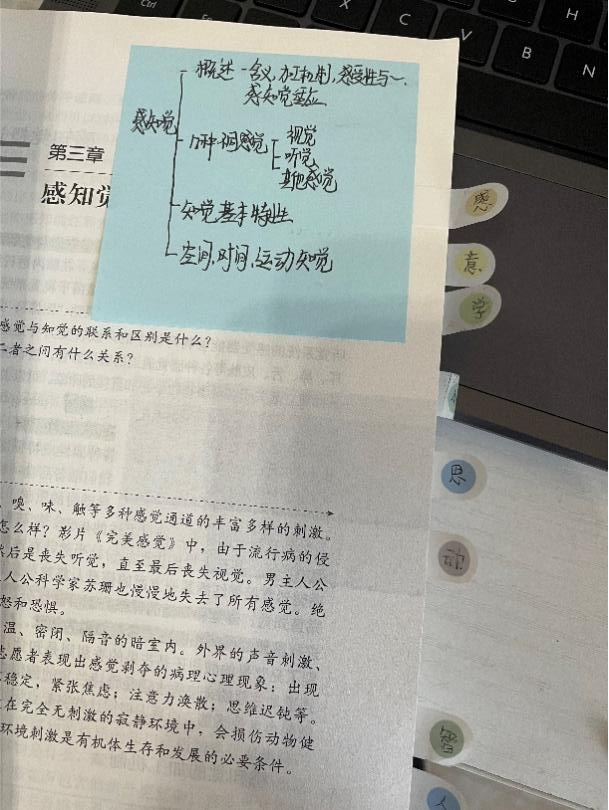 X
C
V
B
N
H
概述－含义,加工机制,感受性与～.
感知觉
几种感觉
视觉
听觉
其他感觉
知觉基本特性
空间,时间,运动知觉
第三章
感知觉
感
意
学
思
动
知
人
感觉与知觉的联系和区别是什么?
二者之间有什么关系?
、嗅、味、触等多种感觉通道的丰富多样的刺激。
怎么样?影片《完美感觉》中,由于流行病的侵
然后是丧失听觉,直至最后丧失视觉。男主人公
人公科学家苏珊也慢慢地失去了所有感觉。绝
怒和恐惧。
温、密闭、隔音的暗室内。外界的声音刺激、
志愿者表现出感觉剥夺的病理心理现象:出现
稳定,紧张焦虑;注意力涣散;思维迟钝等。
在完全无刺激的寂静环境中,会损伤动物健
环境刺激是有机体生存和发展的必要条件。